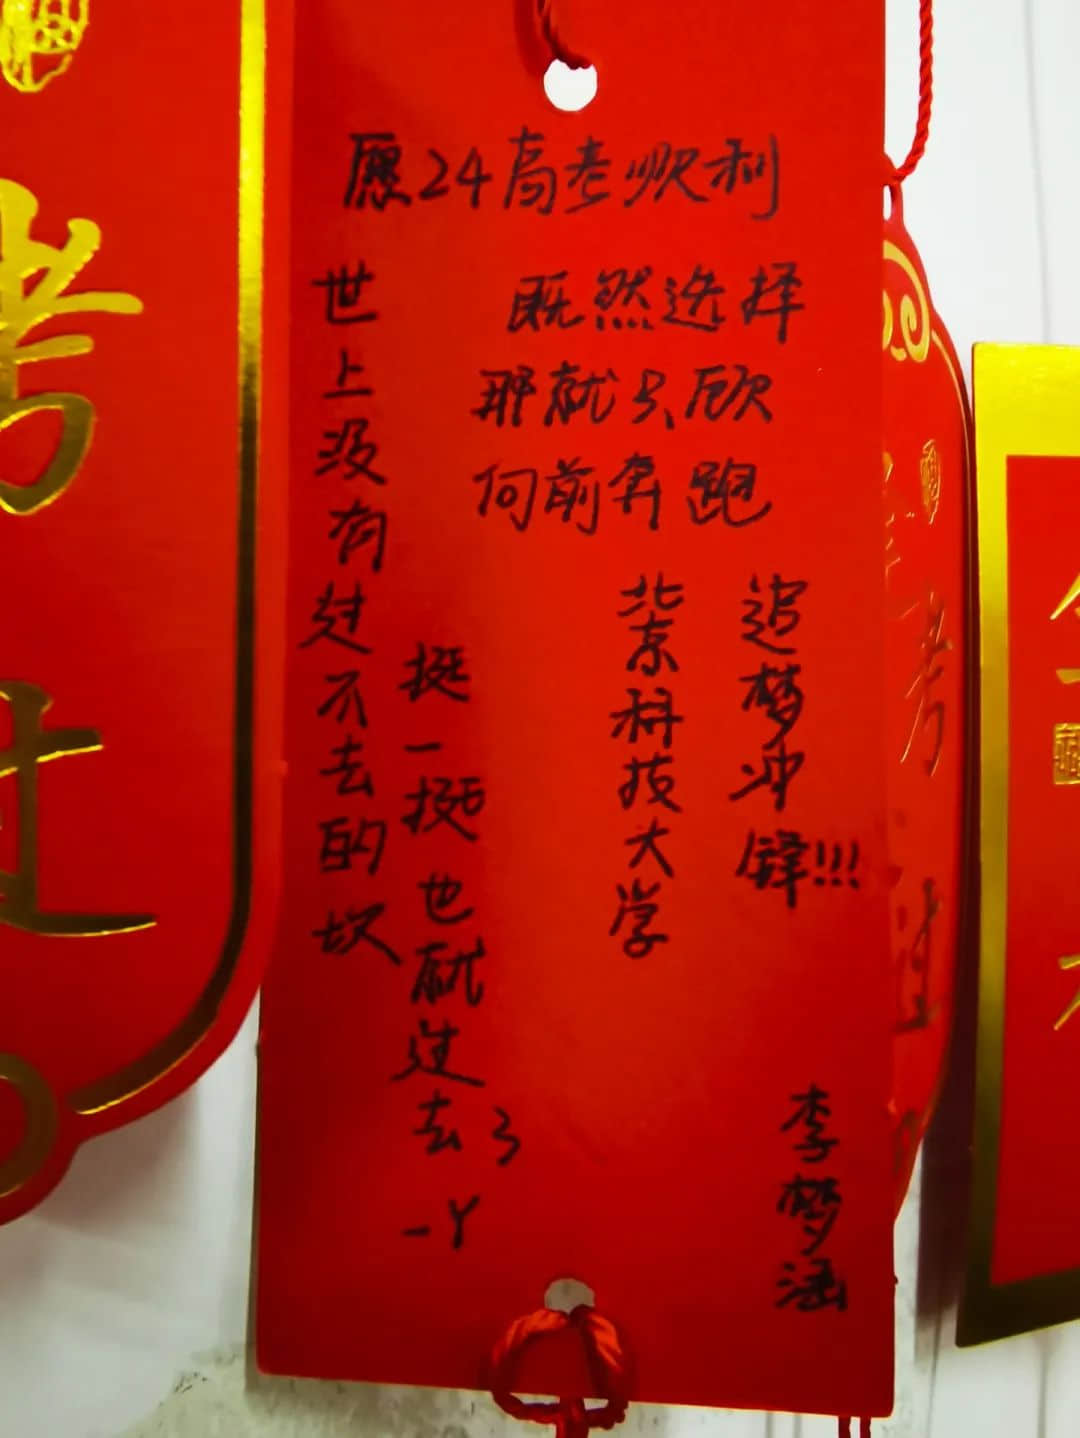 愿24高考顺利
既然选择
那就只顾
向前奔跑
追梦冲锋!!!
北京科技大学
世上没有过不去的坎
挺一挺也就过去了
一Y
李梦涵
考
过